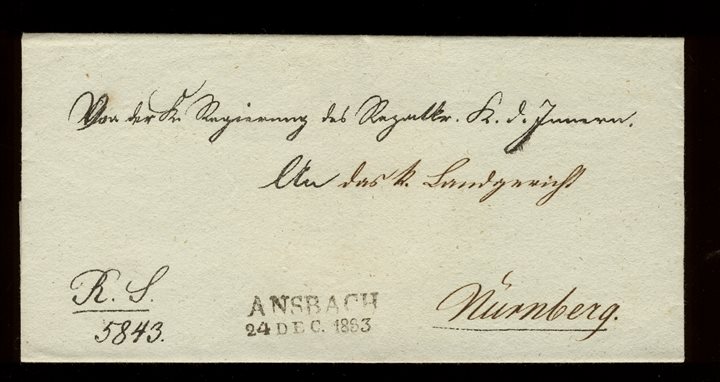 Von der K. Regierung des Rezatkr. K. d. Innern.
An das k. Landgericht
R. S.
5843.
ANSBACH
24 DEC. 1833
Nürnberg.